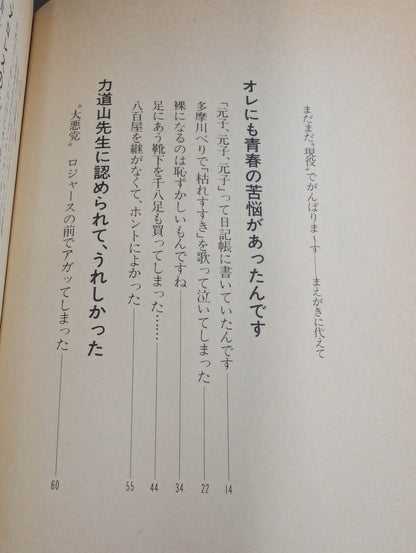 まだまだ〝現役〟でがんばりま〜す――まえがきに代えて
オレにも青春の苦悩があったんです
「元子、元子、元子」って日記帳に書いていたんです――14
多摩川べりで「枯れすすき」を歌って泣いてしまった――22
裸になるのは恥ずかしいもんですね――34
足にあう靴下を千八足も買ってしまった……――44
八百屋を継がなくて、ホントによかった――55
力道山先生に認められて、うれしかった
〝大悪党〟ロジャースの前でアガッてしまった――60